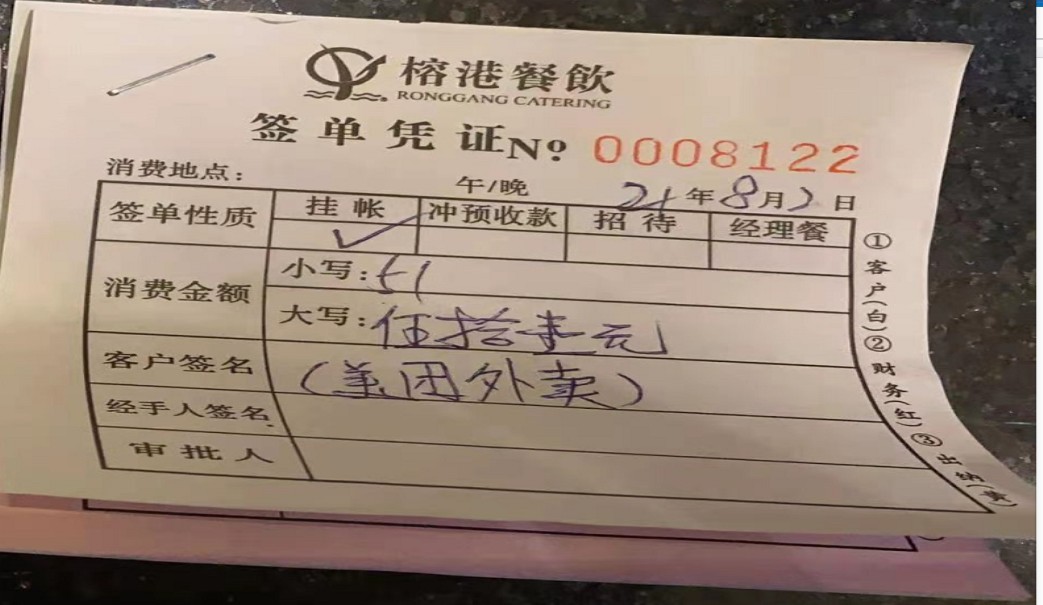 榕港餐飲
RONGGANG CATERING
签单凭证 No: 0008122
消费地点: 午/晚 21年8月2日
签单性质 挂帐 冲预收款 招待 经理餐
✓
消费金额 小写: 51
大写: 伍拾壹元
客户签名 (美团外卖)
经手人签名
审批人
①客户(白)②财务(红)③出纳(黄)